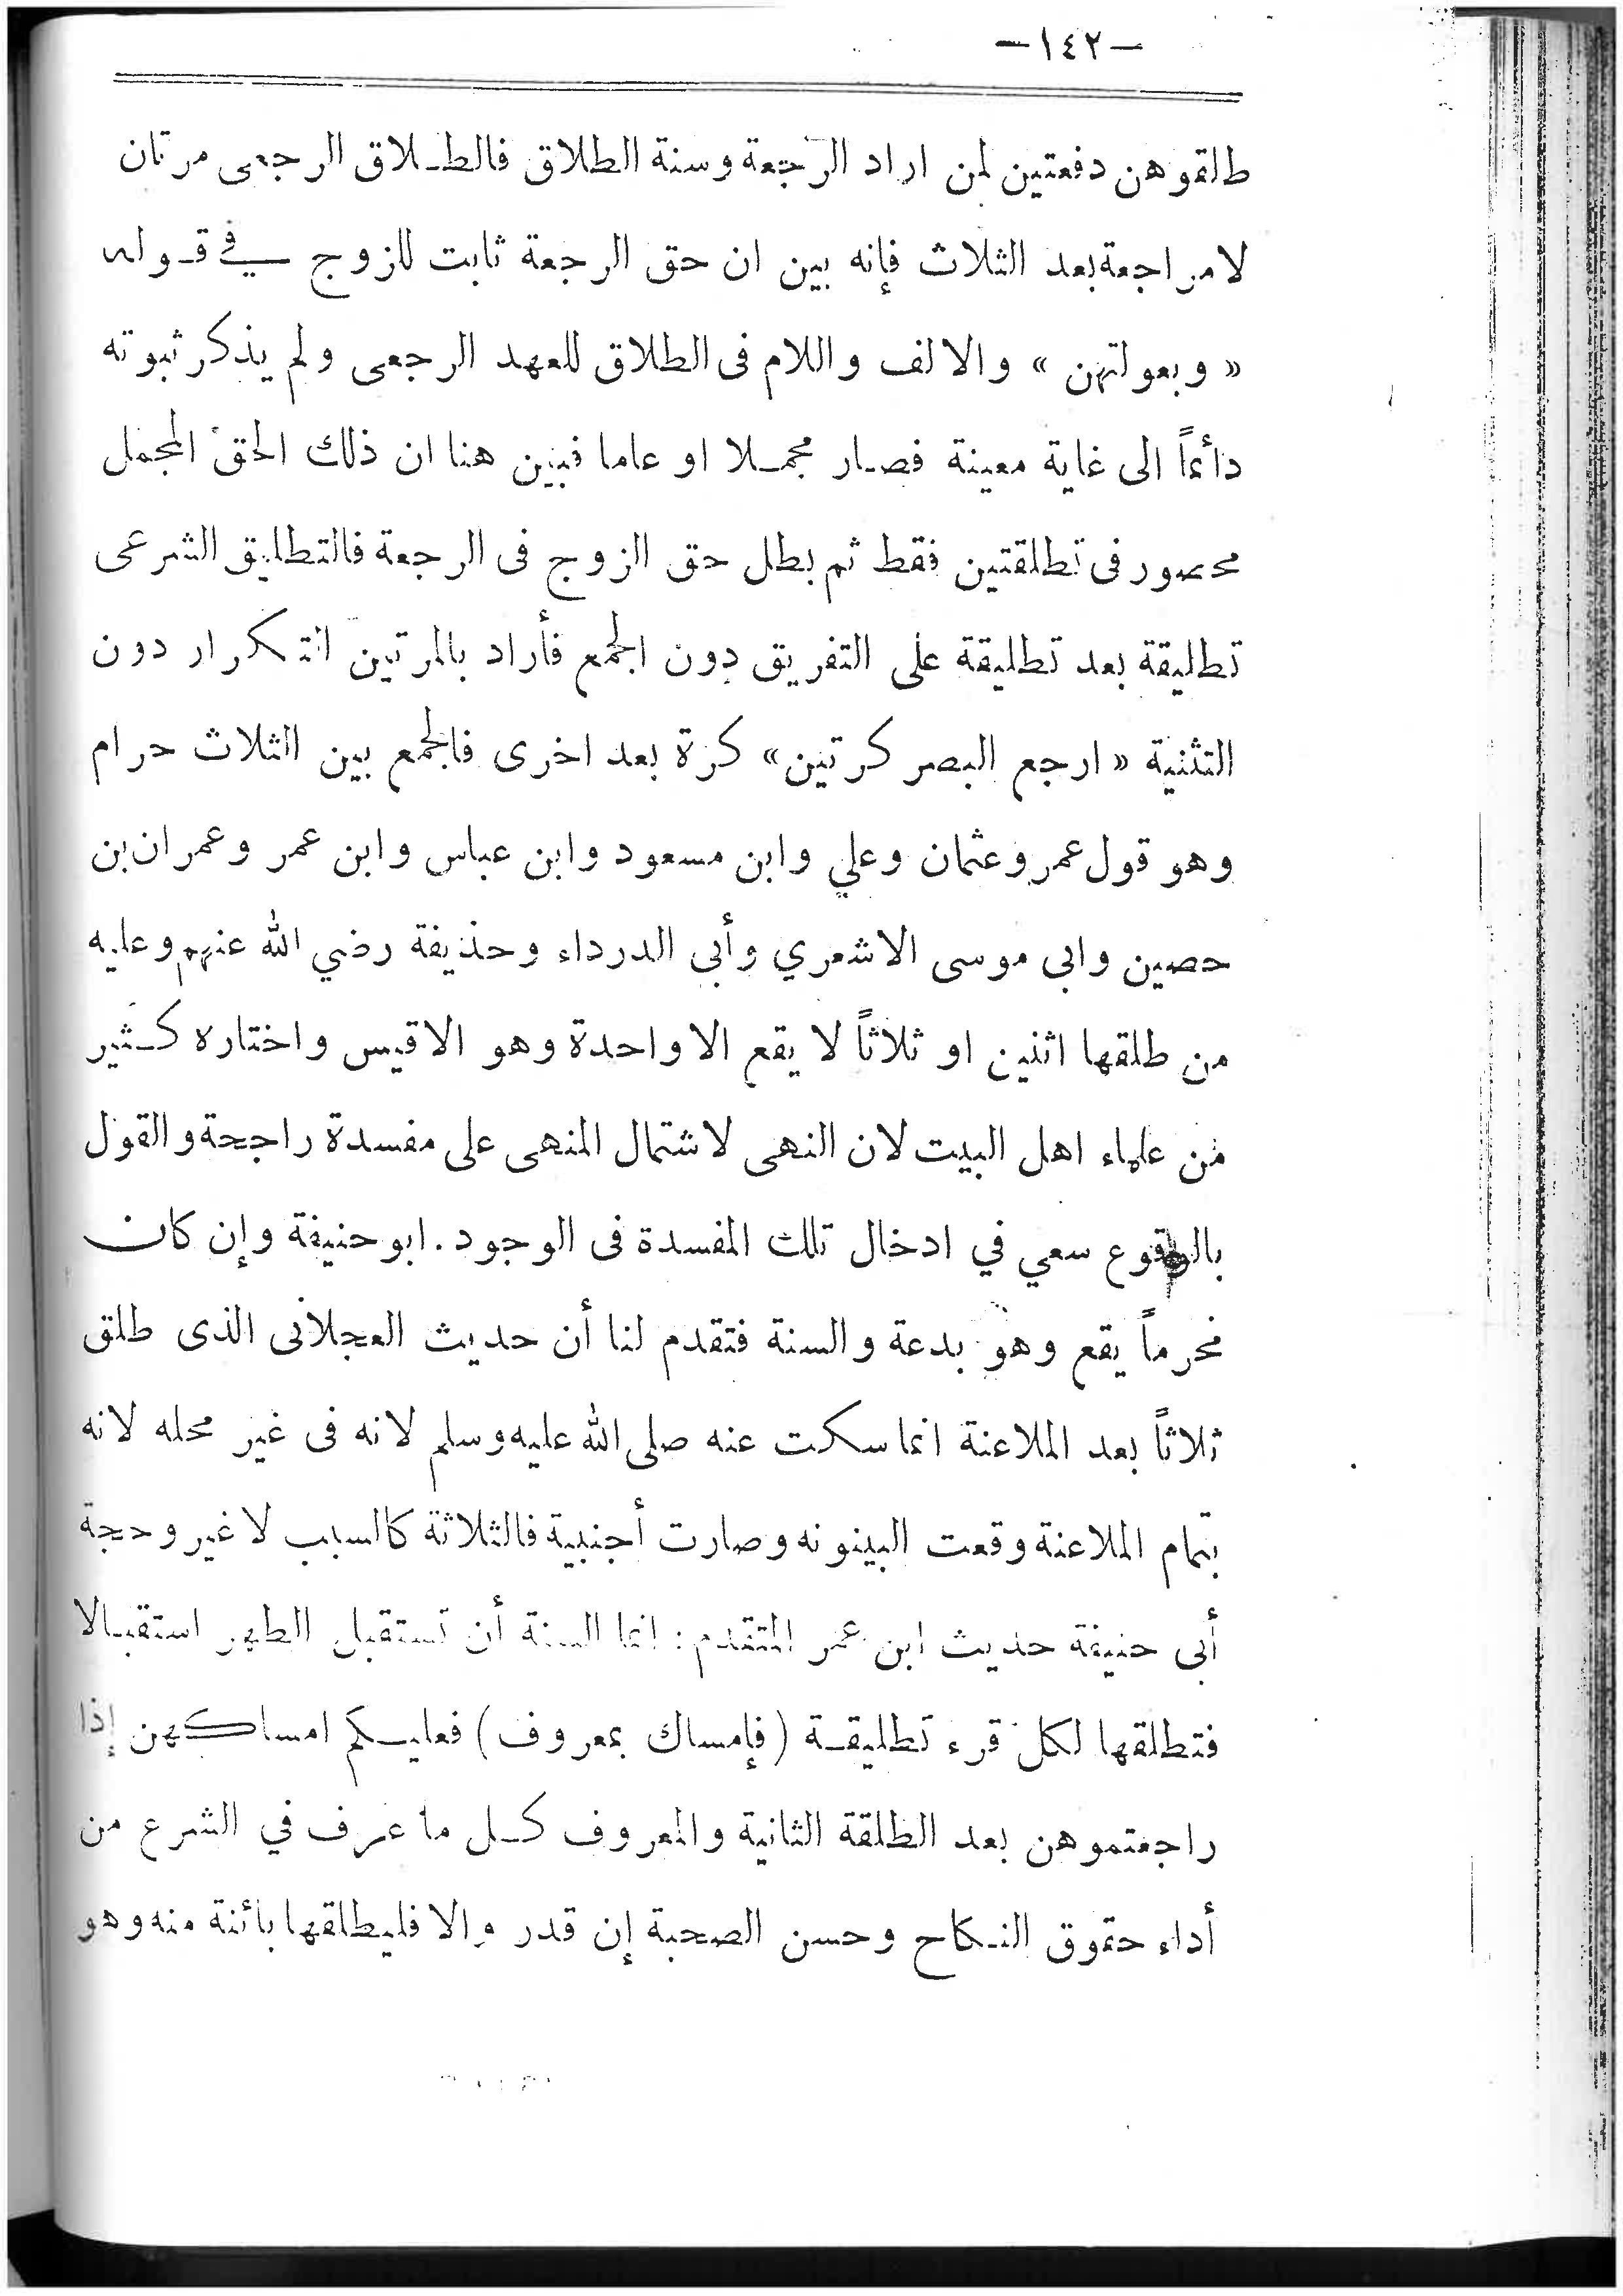 -١٤٢-
طلقوهن دفعتين لمن اراد الرجعة وسنة الطلاق فالطلاق الرجعى مرتان
لا مراجعة بعد الثلاث فإنه بين ان حق الرجعة ثابت للزوج في قوله
« وبعولتهن » والالف واللام فى الطلاق للعهد الرجعى ولم يذكر ثبوته
دأئماً الى غاية معينة فصار مجملا او عاما فبين هنا ان ذلك الحق المجمل
محصور فى تطلقتين فقط ثم بطل حق الزوج فى الرجعة فالتطليق الشرعى
تطليقة بعد تطليقة على التفريق دون الجمع فأراد بالمرتين التكرار دون
التثنية « ارجع البصر كرتين » كرة بعد اخرى فالجمع بين الثلاث حرام
وهو قول عمر وعثمان وعلي وابن مسعود وابن عباس وابن عمر وعمران بن
حصين وابى موسى الاشعري وأبي الدرداء وحذيفة رضي الله عنهم وعليه
من طلقها اثنين او ثلاثاً لا يقع الا واحدة وهو الاقيس واختاره كثير
من علماء اهل البيت لان النهى لاشتمال المنهى على مفسدة راجحة والقول
بالوقوع سعي في ادخال تلك المفسدة فى الوجود . ابو حنيفة وإن كان
محرماً يقع وهو بدعة والسنة فتقدم لنا أن حديث العجلانى الذى طلق
ثلاثاً بعد الملاعنة انما سكت عنه صلى الله عليه وسلم لانه فى غير محله لانه
بتمام الملاعنة وقعت البينونه وصارت أجنبية فالثلاثة كالسبب لا غير وحجة
أبى حنيفة حديث ابن عمر المتقدم : انما السنة أن تستقبل الطهر استقبالا
فتطلقها لكل قرء تطليقة ( فإمساك بمعروف ) فعليكم امساكهن إذا
راجعتموهن بعد الطلقة الثانية والمعروف كل ما عرف في الشرع من
أداء حقوق النكاح وحسن الصحبة إن قدر والا فليطلقها بائنة منه وهو